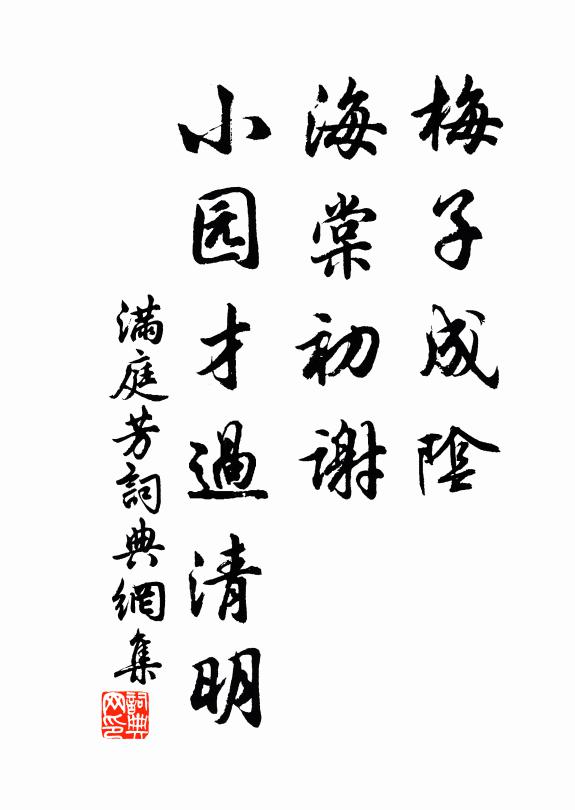 梅子成陰
海棠初謝
小园才過清明
滿庭芳詞典網集
詞典网印